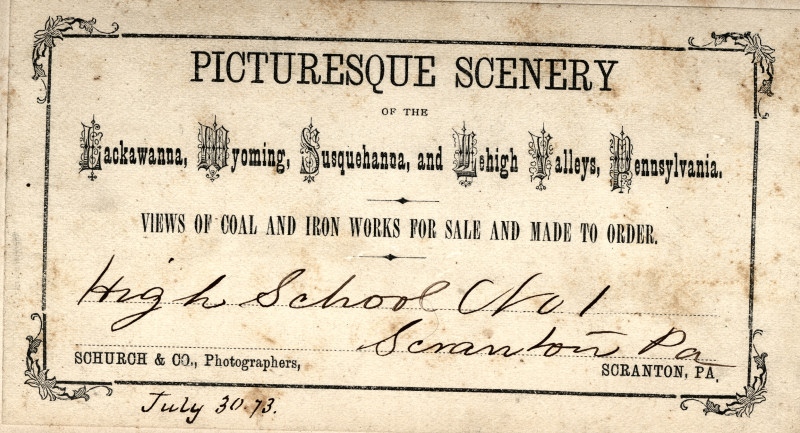 PICTURESQUE SCENERY
OF THE
Lackawanna, Wyoming, Susquehanna, and Lehigh Valleys, Pennsylvania.
VIEWS OF COAL AND IRON WORKS FOR SALE AND MADE TO ORDER.
High School No 1
Scranton Pa
SCHURCH & CO., Photographers,
SCRANTON, PA.
July 30. 73.